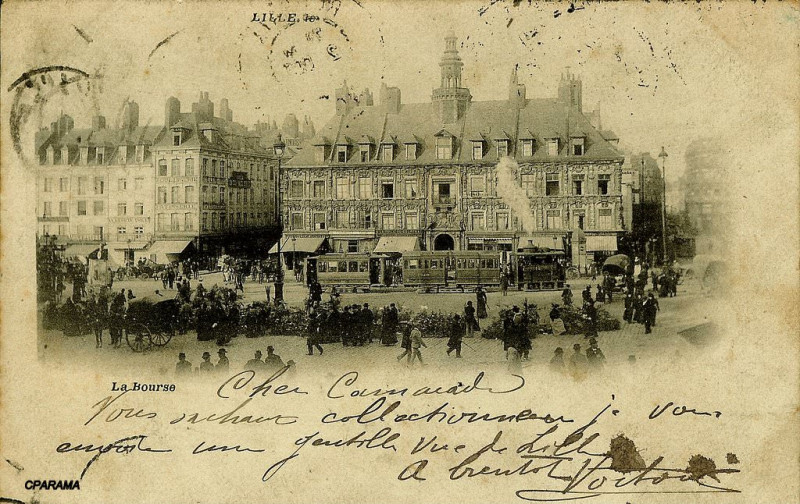 LILLE, le
LA BOURSE
Cher Camarade
Vous sachant collectionneur je vous
envoie une gentille vue de Lille
A bientôt
CPARAMA